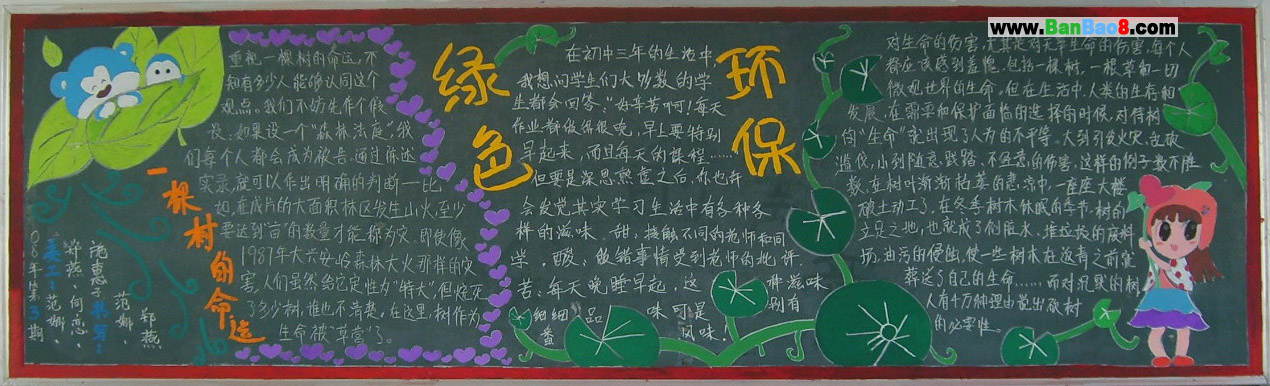 www.BanBao8.com
绿色
环保
一棵树的命运
重视一棵树的命运,不
知有多少人能够认同这个
观点。我们不妨先作个假
设:如果设一个“森林法庭”,我
们每个人都会成为被告,通过陈述
实录,就可以作出明确的判断——比
如,在成片的大面积林区发生山火,至少
要达到“亩”的数量才能称为灾。即使像
1987年大兴安岭森林大火那样的灾
害,人们虽然给它定性为“特大”,但烧死
了多少树,谁也不清楚,在这里,树作为
生命被“草营”了。
在初中三年的生活中
我想问学生们大多数的学
生都会回答:“好辛苦啊!每天
作业都做得很晚,早上要特别
早起来,而且每天的课程……
但要是深思熟虑之后,你也许
会发觉其实学习生活中有各种各
样的滋味。甜,接触不同的老师和同
学,酸、做错事情受到老师的批评
苦、每天晚睡早起,这 种滋味
细细品 味 可是 别有
番 风味!
对生命的伤害,尤其是对无辜生命的伤害,每个人
都应该感到羞愧。包括一棵树,一根草和一切
微观世界的生命。但在生活中,人类的生存和
发展,在需要和保护面临的选择的时候,对待树
的“生命”就出现了人为的不平等。大到引发火灾、乱砍
滥伐,小到随意践踏、不经意的伤害,这样的例子数不胜
数。在树叶渐渐枯萎的悲凉中,一座座大楼
破土动工了。在冬季树木休眠的季节,树的
立足之地,也就成了倒脏水、堆垃圾的废料
场,油污的侵蚀,使一些树木在没有之前就
葬送了自己的生命……而对沉默的树
人有千万种理由说出砍树
的必要性。
范惠子书写:
范娜、郑燕
郑燕、何恋、
美工:范娜、
08年第3期